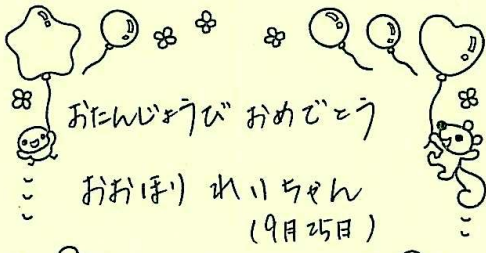 おたんじょうび おめでとう
おおほり れいちゃん
(9月25日)